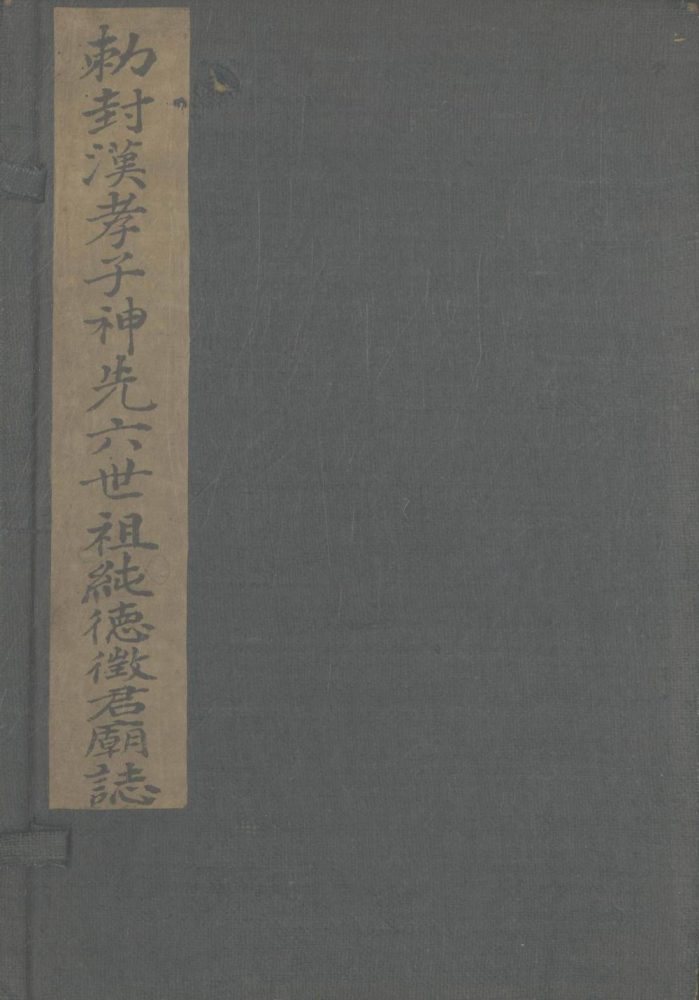 勅封漢孝子神先六世祖純德徵君廟誌